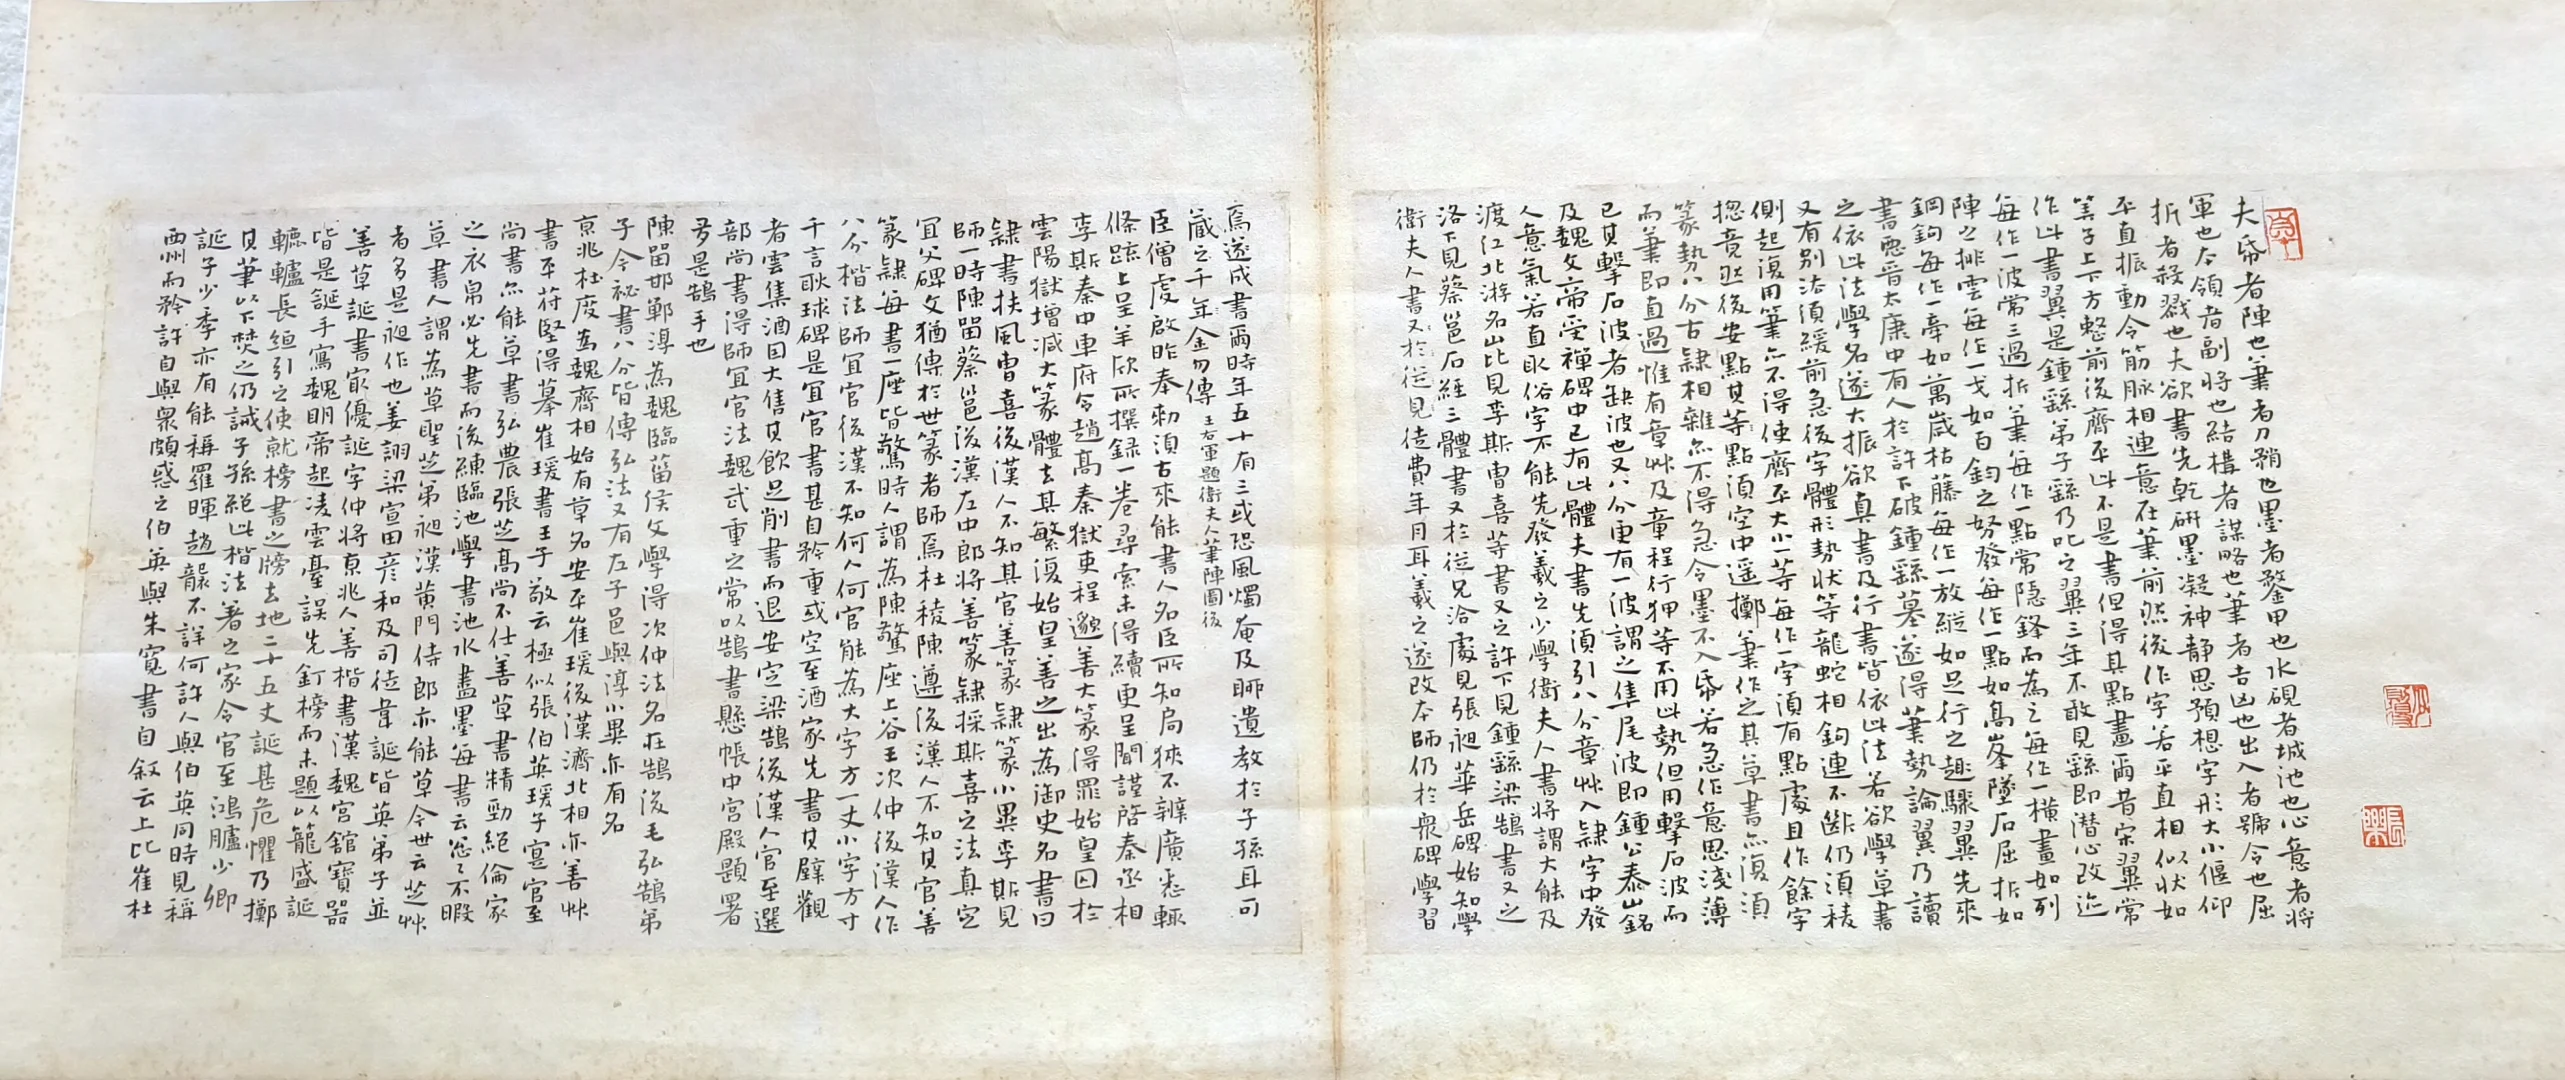 夫帋者陣也筆者刀矟也墨者鍪甲也水硯者城池也心意者將
軍也本領者副將也結構者謀略也筆者吉凶也出入者號令也屈
折者殺戮也夫欲書先乾研墨凝神静思預想字形大小偃仰
平直振動令筋脉相連意在筆前然後作字若平直相似狀如
筭子上下方整前後齊平此不是書但得其點畫爾昔宋翼常
作此書翼是鍾繇弟子繇乃叱之翼三年不敢見繇即潜心改迹
每作一波常三過折筆每作一點常隐鋒而為之每作一橫畫如列
陣之排雲每作一戈如百鈞之努發每作一點如高峯墜石屈折如
鋼鉤每作一牽如萬歲枯藤每作一放縱如足行之趣驟翼先來
書惡晉太康中有人於許下破鍾繇墓遂得筆勢論翼乃讀
之依此法學名遂大振欲真書及行書皆依此法若欲學草書
又有别法須緩前急後字體形勢狀等龍蛇相鉤連不斷仍須稜
側起復用筆亦不得使齊平大小一等每作一字須有點處且作餘字
揔竟然後安點其等點須空中遥擲筆作之其草書亦復須
篆勢八分古隸相雜亦不得急令墨不入帋若急作意思淺薄
而筆即直過惟有章艸及章程行狎等不用此勢但用擊石波而
已其擊石波者缺波也又八分更有一波謂之隼尾波即鍾公泰山銘
及魏文帝受禪碑中已有此體夫書先須引八分章艸入隸字中發
人意氣若直取俗字不能先發羲之少學衛夫人書將謂大能及
渡江北游名山比見李斯曹喜等書又之許下見鍾繇梁鵠書又之
洛下見蔡邕石經三體書又於從兄洽處見張昶華岳碑始知學
衛夫人書又於從見徒費年月耳羲之遂改本師仍於衆碑學習
焉遂成書爾時年五十有三或恐風燭奄及聊遺教於子孫耳可
藏之千年金勿傳 王右軍題衛夫人筆陣圖後
臣僧虔啟昨奉勑須古來能書人名臣所知局狹不辧廣悉輒
條疏上呈羊欣所撰録一卷尋索未得續更呈聞謹啓秦丞相
李斯秦中車府令趙高秦獄吏程邈善大篆得罪始皇囚於
雲陽獄增减大篆體去其繁復始皇善之出為御史名書曰
隸書扶風曹喜後漢人不知其官善篆隸篆小異李斯見
師一時陳畱蔡邕後漢左中郎將善篆隸採斯喜之法真定
宜父碑文猶傳於世篆者師焉杜稜陳遵後漢人不知其官善
篆隸每書一座皆驚時人謂為陳驚座上谷王次仲後漢人作
八分楷法師宜官後漢不知何人何官能為大字方一丈小字方寸
千言耿球碑是宜官書甚自矜重或空至酒家先書其壁觀
者雲集酒因大售其飲足削書而退安定梁鵠後漢人官至選
部尚書得師宜官法魏武重之常以鵠書懸帳中宮殿題署
多是鵠手也
陳畱邯鄲淳為魏臨菑侯文學得次仲法名在鵠後毛弘鵠弟
子今祕書八分皆傳弘法又有左子邑與淳小異亦有名
京兆杜度為魏齊相始有草名安平崔瑗後漢濟北相亦善艸
書平苻堅得摹崔瑗書王子敬云極似張伯英瑗子寔官至
尚書亦能草書弘農張芝高尚不仕善草書精勁絕倫家
之衣帛必先書而後練臨池學書池水盡墨每書云怱怱不暇
草書人謂為草聖芝弟昶漢黄門侍郎亦能草今世云芝艸
者多是昶作也姜詡梁宣田彦和及司徒韋誕皆英弟子並
善草誕書㝡優誕字仲將京兆人善楷書漢魏宮舘寶器
皆是誕手寫魏明帝起凌雲臺誤先釘榜而未題以籠盛誕
轆轤長絙引之使就榜書之牓去地二十五丈誕甚危懼乃擲
其筆以下焚之仍誡子孫絕此楷法著之家令官至鴻臚少卿
誕子少季亦有能稱羅暉趙襲不詳何許人與伯英同時見稱
西州而矜許自與衆頗惑之伯英與朱寬書自叙云上比崔杜